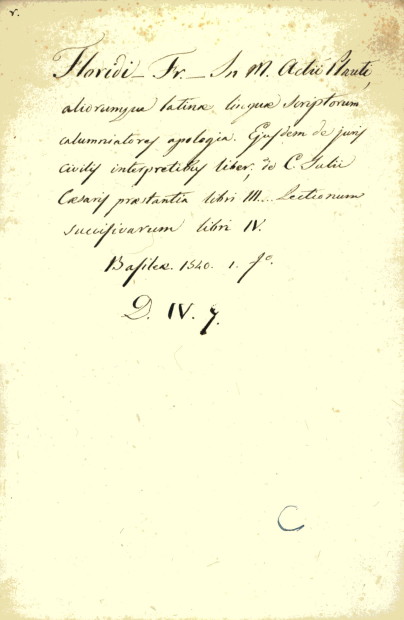 r.
Floridi_ Fr_ In M. Actii Plauti,
aliorumque latinæ linguæ scriptorum
calumniatores apologia. Ejusdem de juris
civilis interpretibus liber, de C. Julii
Cæsaris præstantia libri III... Lectionum
succisivarum libri IV.
Basileæ. 1540. 1. fo.
D. IV. 7.
C